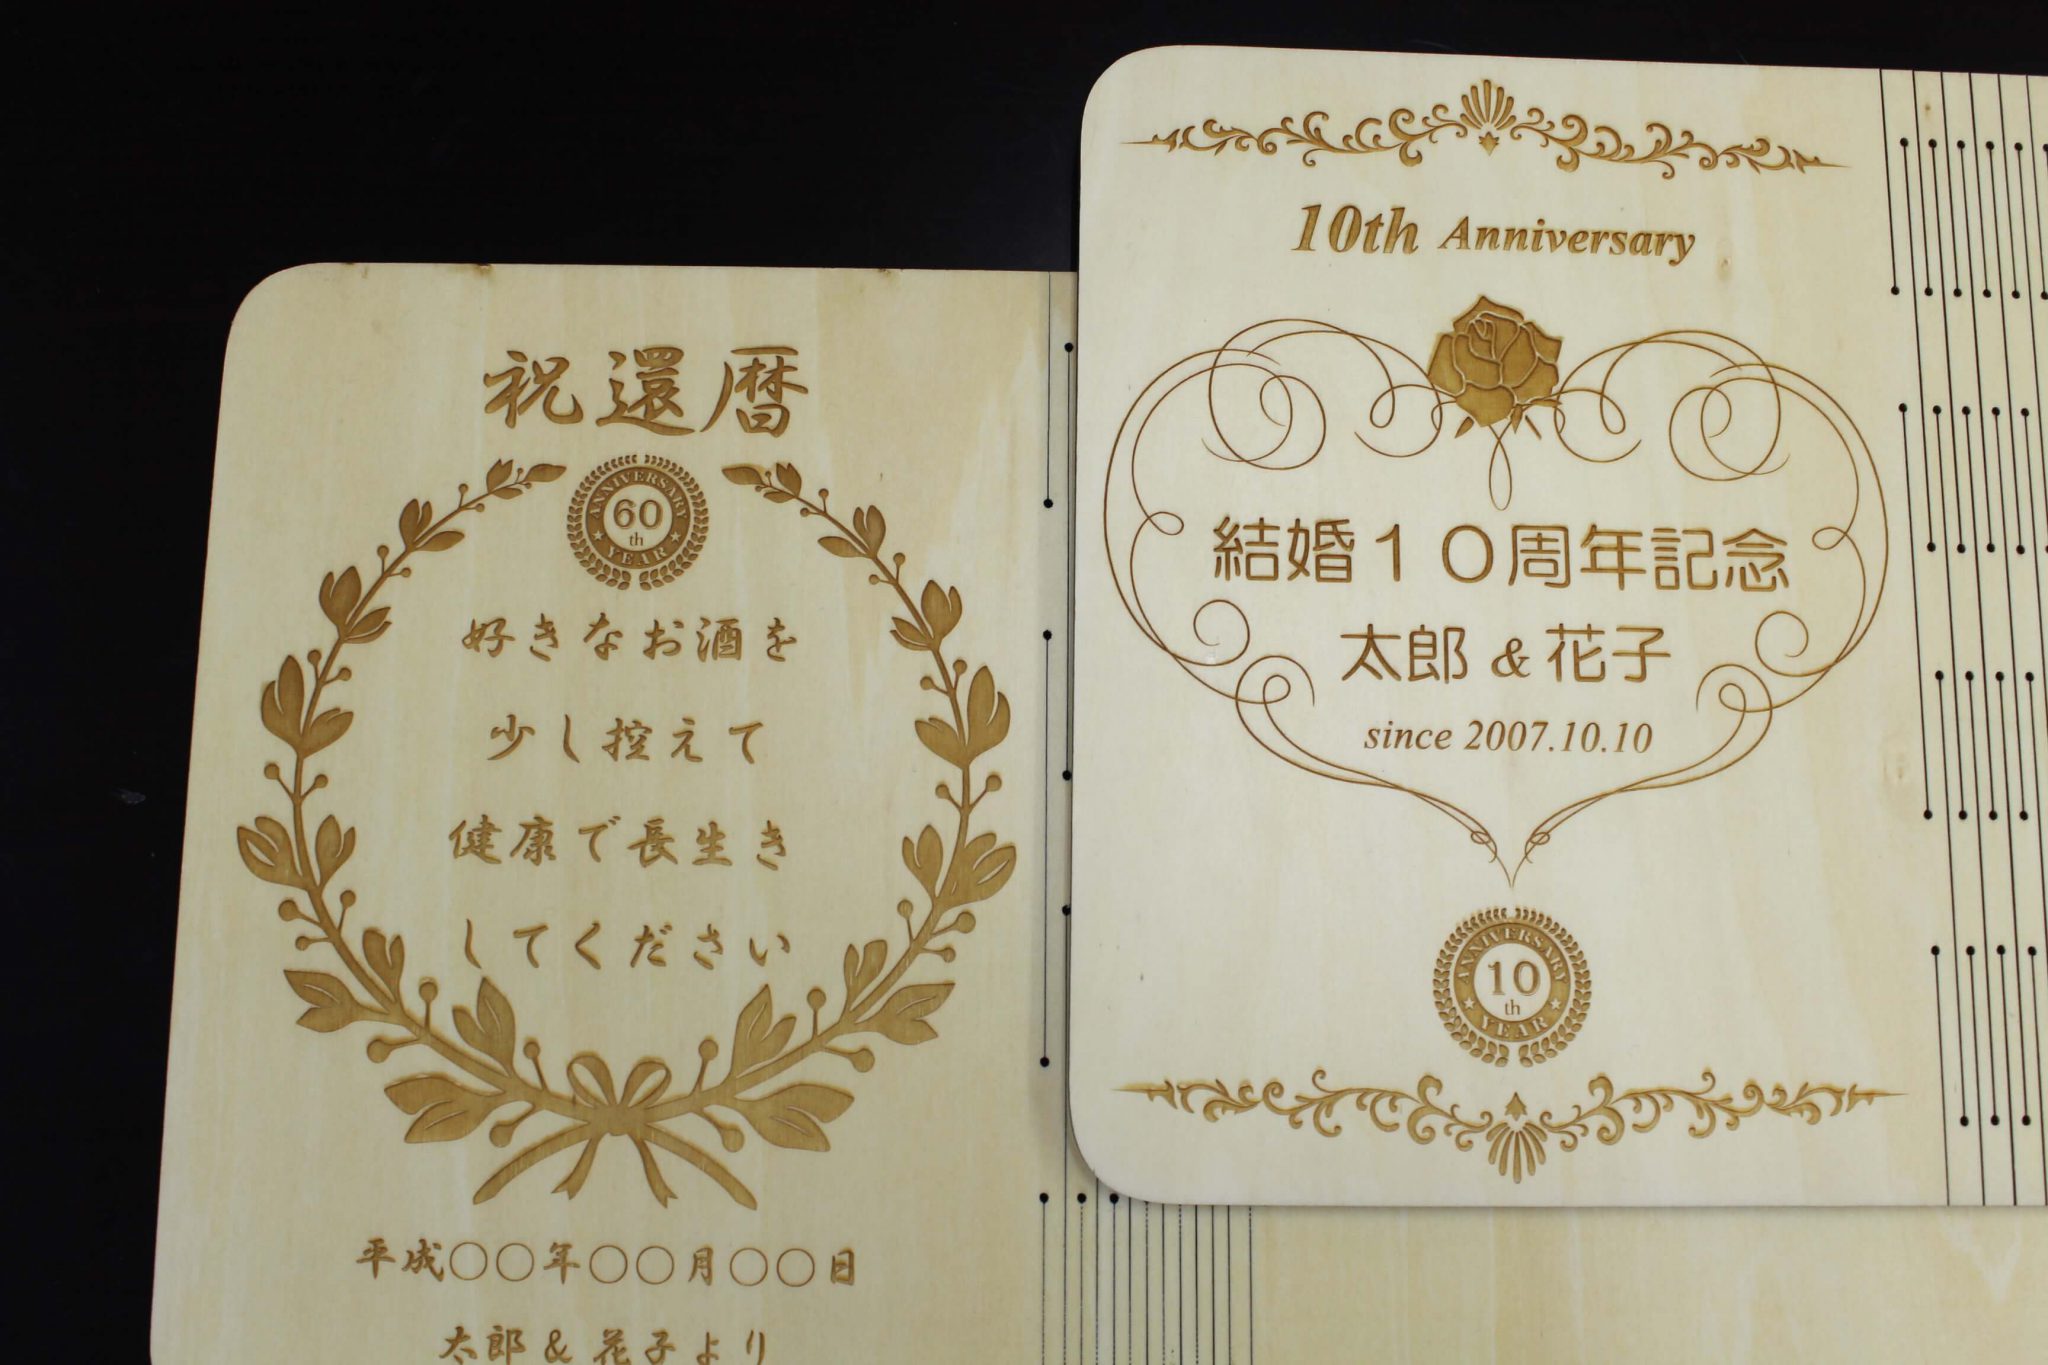 祝還暦
ANNIVERSARY
60
th
YEAR
好きなお酒を
少し控えて
健康で長生き
してください
平成〇〇年〇〇月〇〇日
太郎&花子より
10th Anniversary
結婚10周年記念
太郎 & 花子
since 2007.10.10
ANNIVERSARY
10
th
YEAR